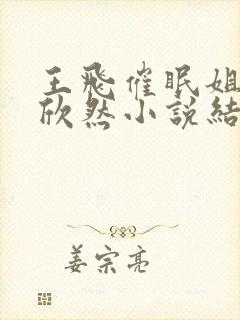 王飛催眠姐
欣然小說結
姜宗亮